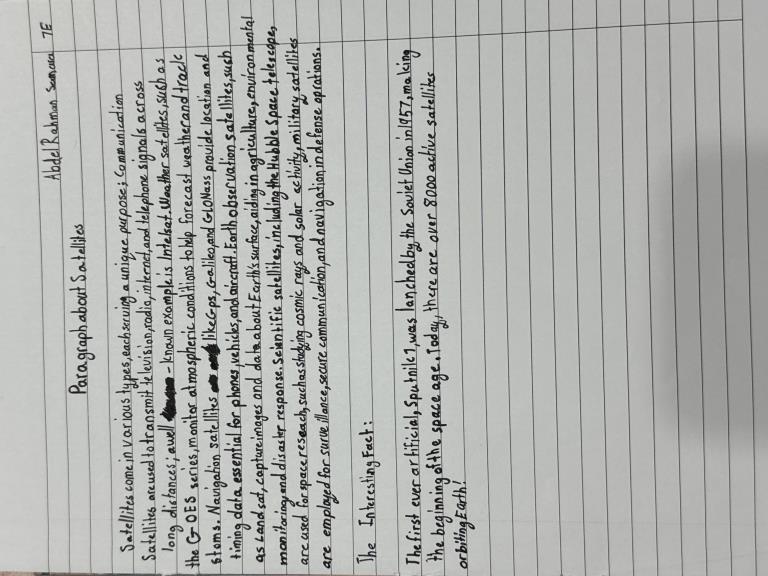 AbdelRahman Samara 7E
Paragraph about Satellites
Satellites come in various types, each serving a unique purpose; Communication
Satellites are used to transmit television, radio, internet, and telephone signals across
long distances; a well - known example is Intelsat. Weather satellites, such as
the GOES series, monitor atmospheric conditions to help forecast weather and track
stoms. Navigation satellites like Gps, Galileo, and GLONass provide location and
timing data essential for phones, vehicles, and aircraft. Earth observation satellites, such
as Landsat, capture images and data about Earth's surface, aiding in agriculture, environmental
monitoring, and disaster response. Scientific satellites, including the Hubble Space telescope,
are used for space reseach, such as studying cosmic rays and solar activity, military satellites
are employed for surveillance, secure communication, and navigation in defense oprations.
The Interesting Fact:
The first ever artificial, Sputnik 1, was lanched by the Soviet Union in 1957, making
the beginning of the space age. Today, there are over 8000 active satellites
orbiting Earth!